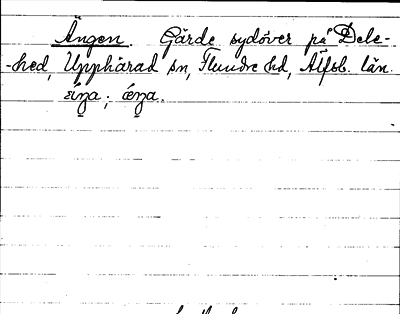 Ängen. Gärde sydöver på Dele-
-hed, Upphärad sn, Flundre hd, Älfsb. län.